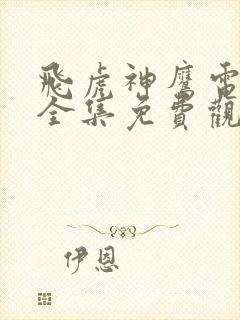 飛虎神鷹電
全集免費觀
伊恩